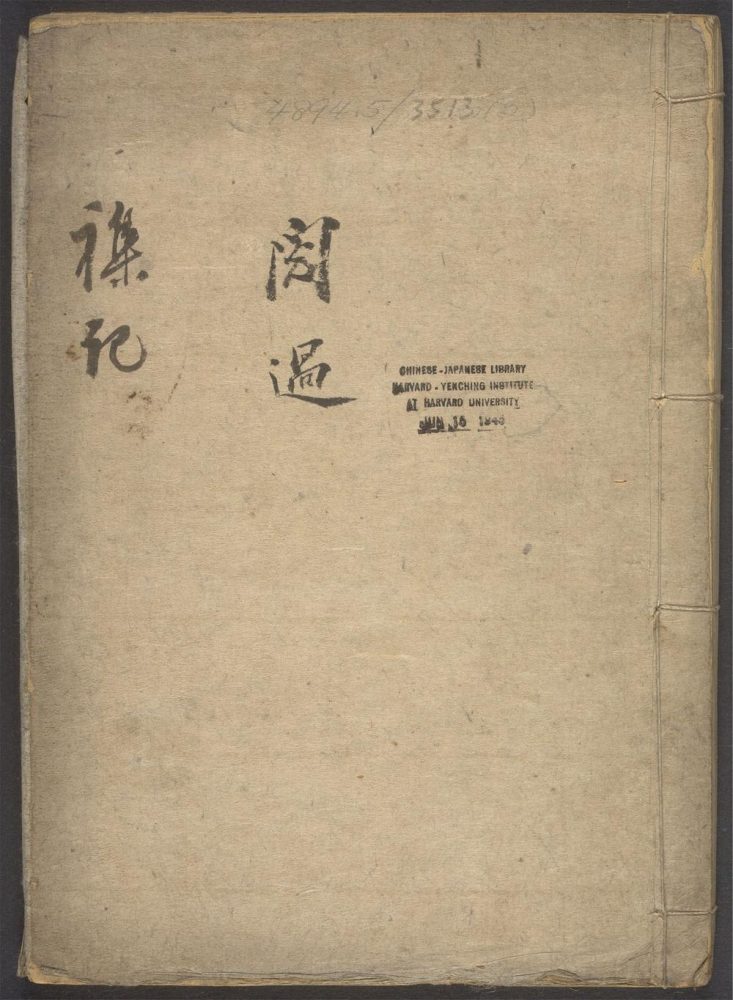 4894.5/3513
CHINESE - JAPANESE LIBRARY
HARVARD - YENCHING INSTITUTE
AT HARVARD UNIVERSITY
JUN 15
閱過
襍記